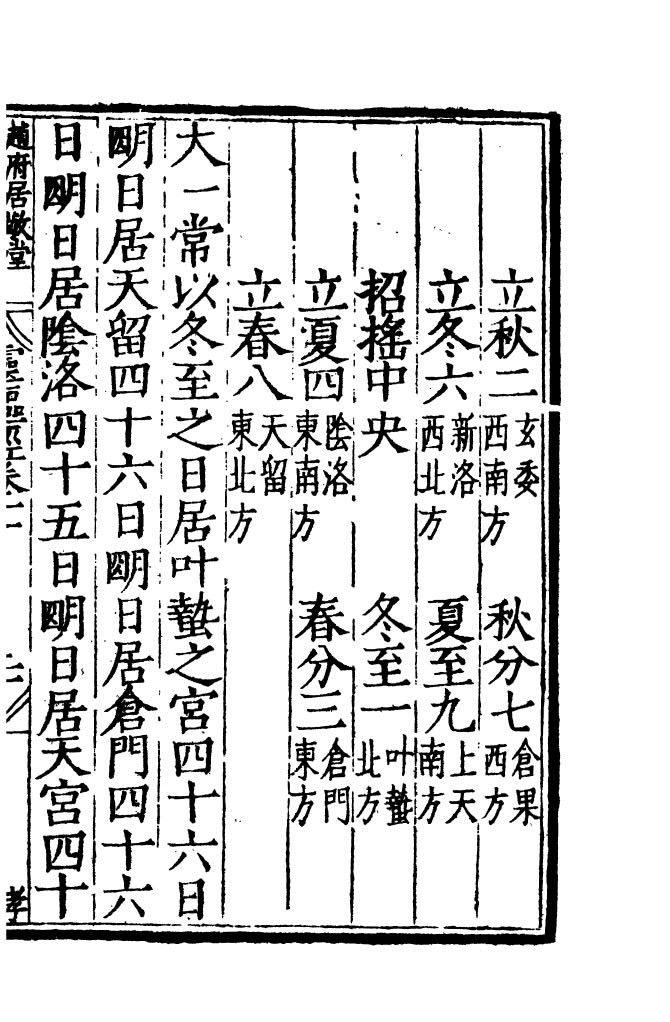 立秋二 玄委 西南方 秋分七 倉果 西方
立冬六 新洛 西北方 夏至九 上天 南方
招搖中央 冬至一 叶蟄 北方
立夏四 陰洛 東南方 春分三 倉門 東方
立春八 天留 東北方
大一常以冬至之日居叶蟄之宮四十六日
明日居天留四十六日明日居倉門四十六
日明日居陰洛四十五日明日居天宮四十
趙府居敬堂